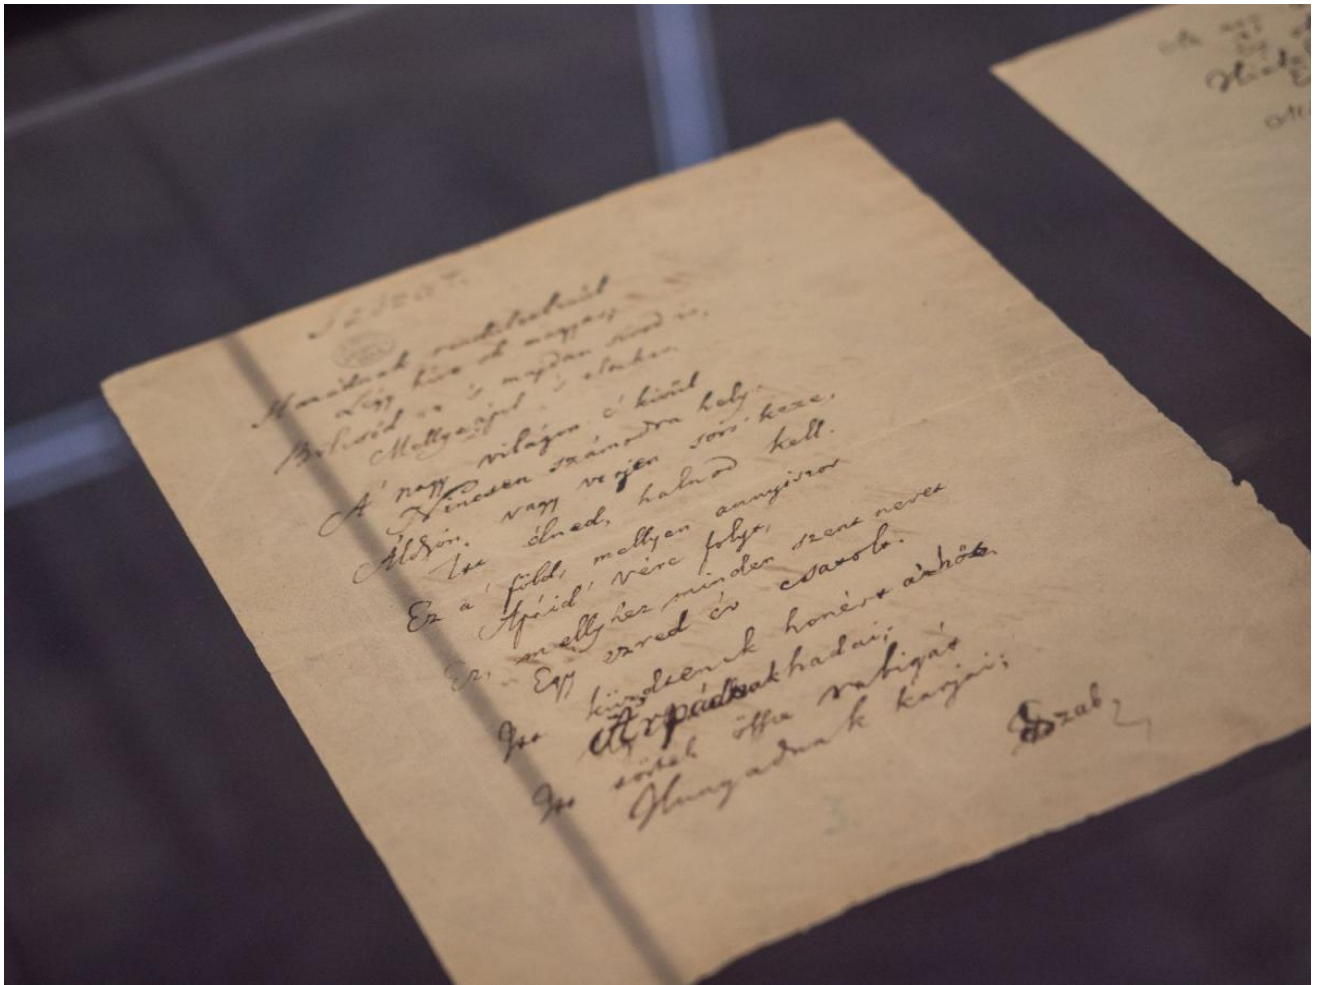 Szózat.
Hazádnak rendületlenűl
Légy híve oh magyar;
Bölcsőd ez 's majdan sírod is,
Melly ápol 's eltakar.
A' nagy világon e' kivűl
Nincsen számodra hely.
Áldjon, vagy verjen sors' keze,
Itt élned, halnod kell.
Ez a' föld, mellyen annyiszor
Apáid' vére folyt,
Ez, mellyhez minden szent nevet
Egy ezred év csatolt.
Itt küzdtenek honért a' hős
Árpádnak hadai;
Itt törtek össze rabigát
Hunyadnak karjai;
Szab